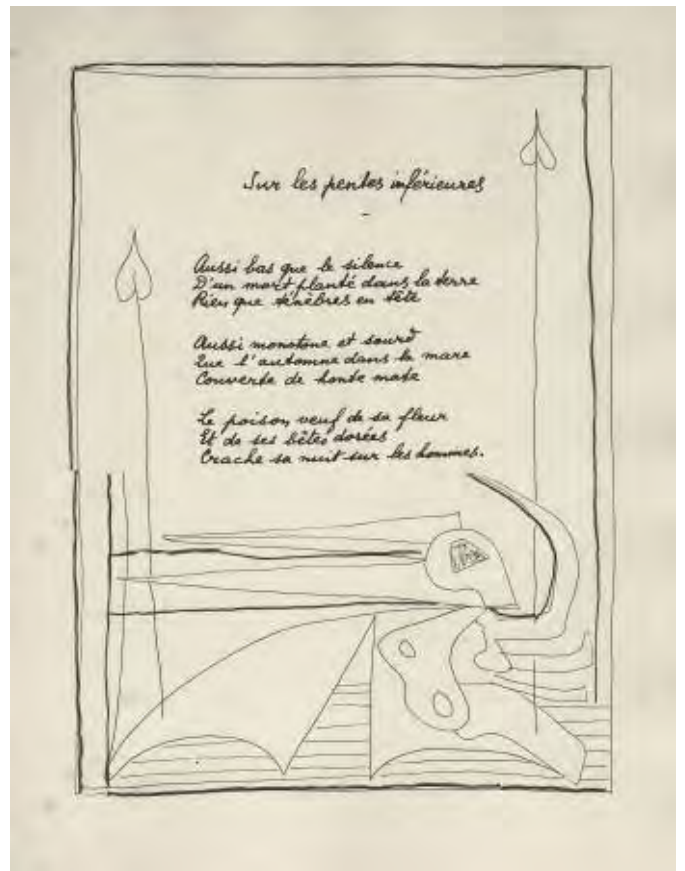 Sur les pentes inférieures
-
Aussi bas que le silence
D'un mort planté dans la terre
Rien que ténèbres en tête
Aussi monotone et sourd
Que l'automne dans la mare
Couverte de honte mate
Le poison veuf de sa fleur
Et de ses bêtes dorées
Crache sa nuit sur les hommes.